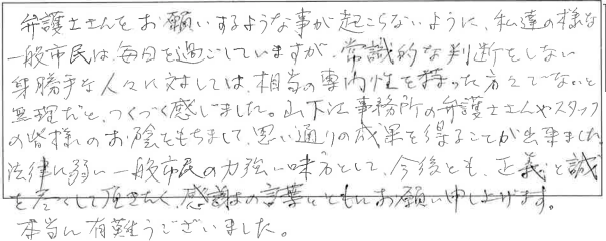 弁護士さんをお願いするような事が起こらないように、私達の様な
一般市民は、毎日を過ごしていますが、常識的な判断をしない
身勝手な人々に対しては、相当の専門性を持った方々でないと
無理だと、つくづく感じました。山下江事務所の弁護士さんやスタッフ
の皆様のお陰をもちまして、思い通りの成果を得ることが出来ました。
法律に弱い一般市民の力強い味方として、今後とも、正義と誠
を尽くして頂きたく、感謝の言葉とともにお願い申し上げます。
本当に有難うございました。